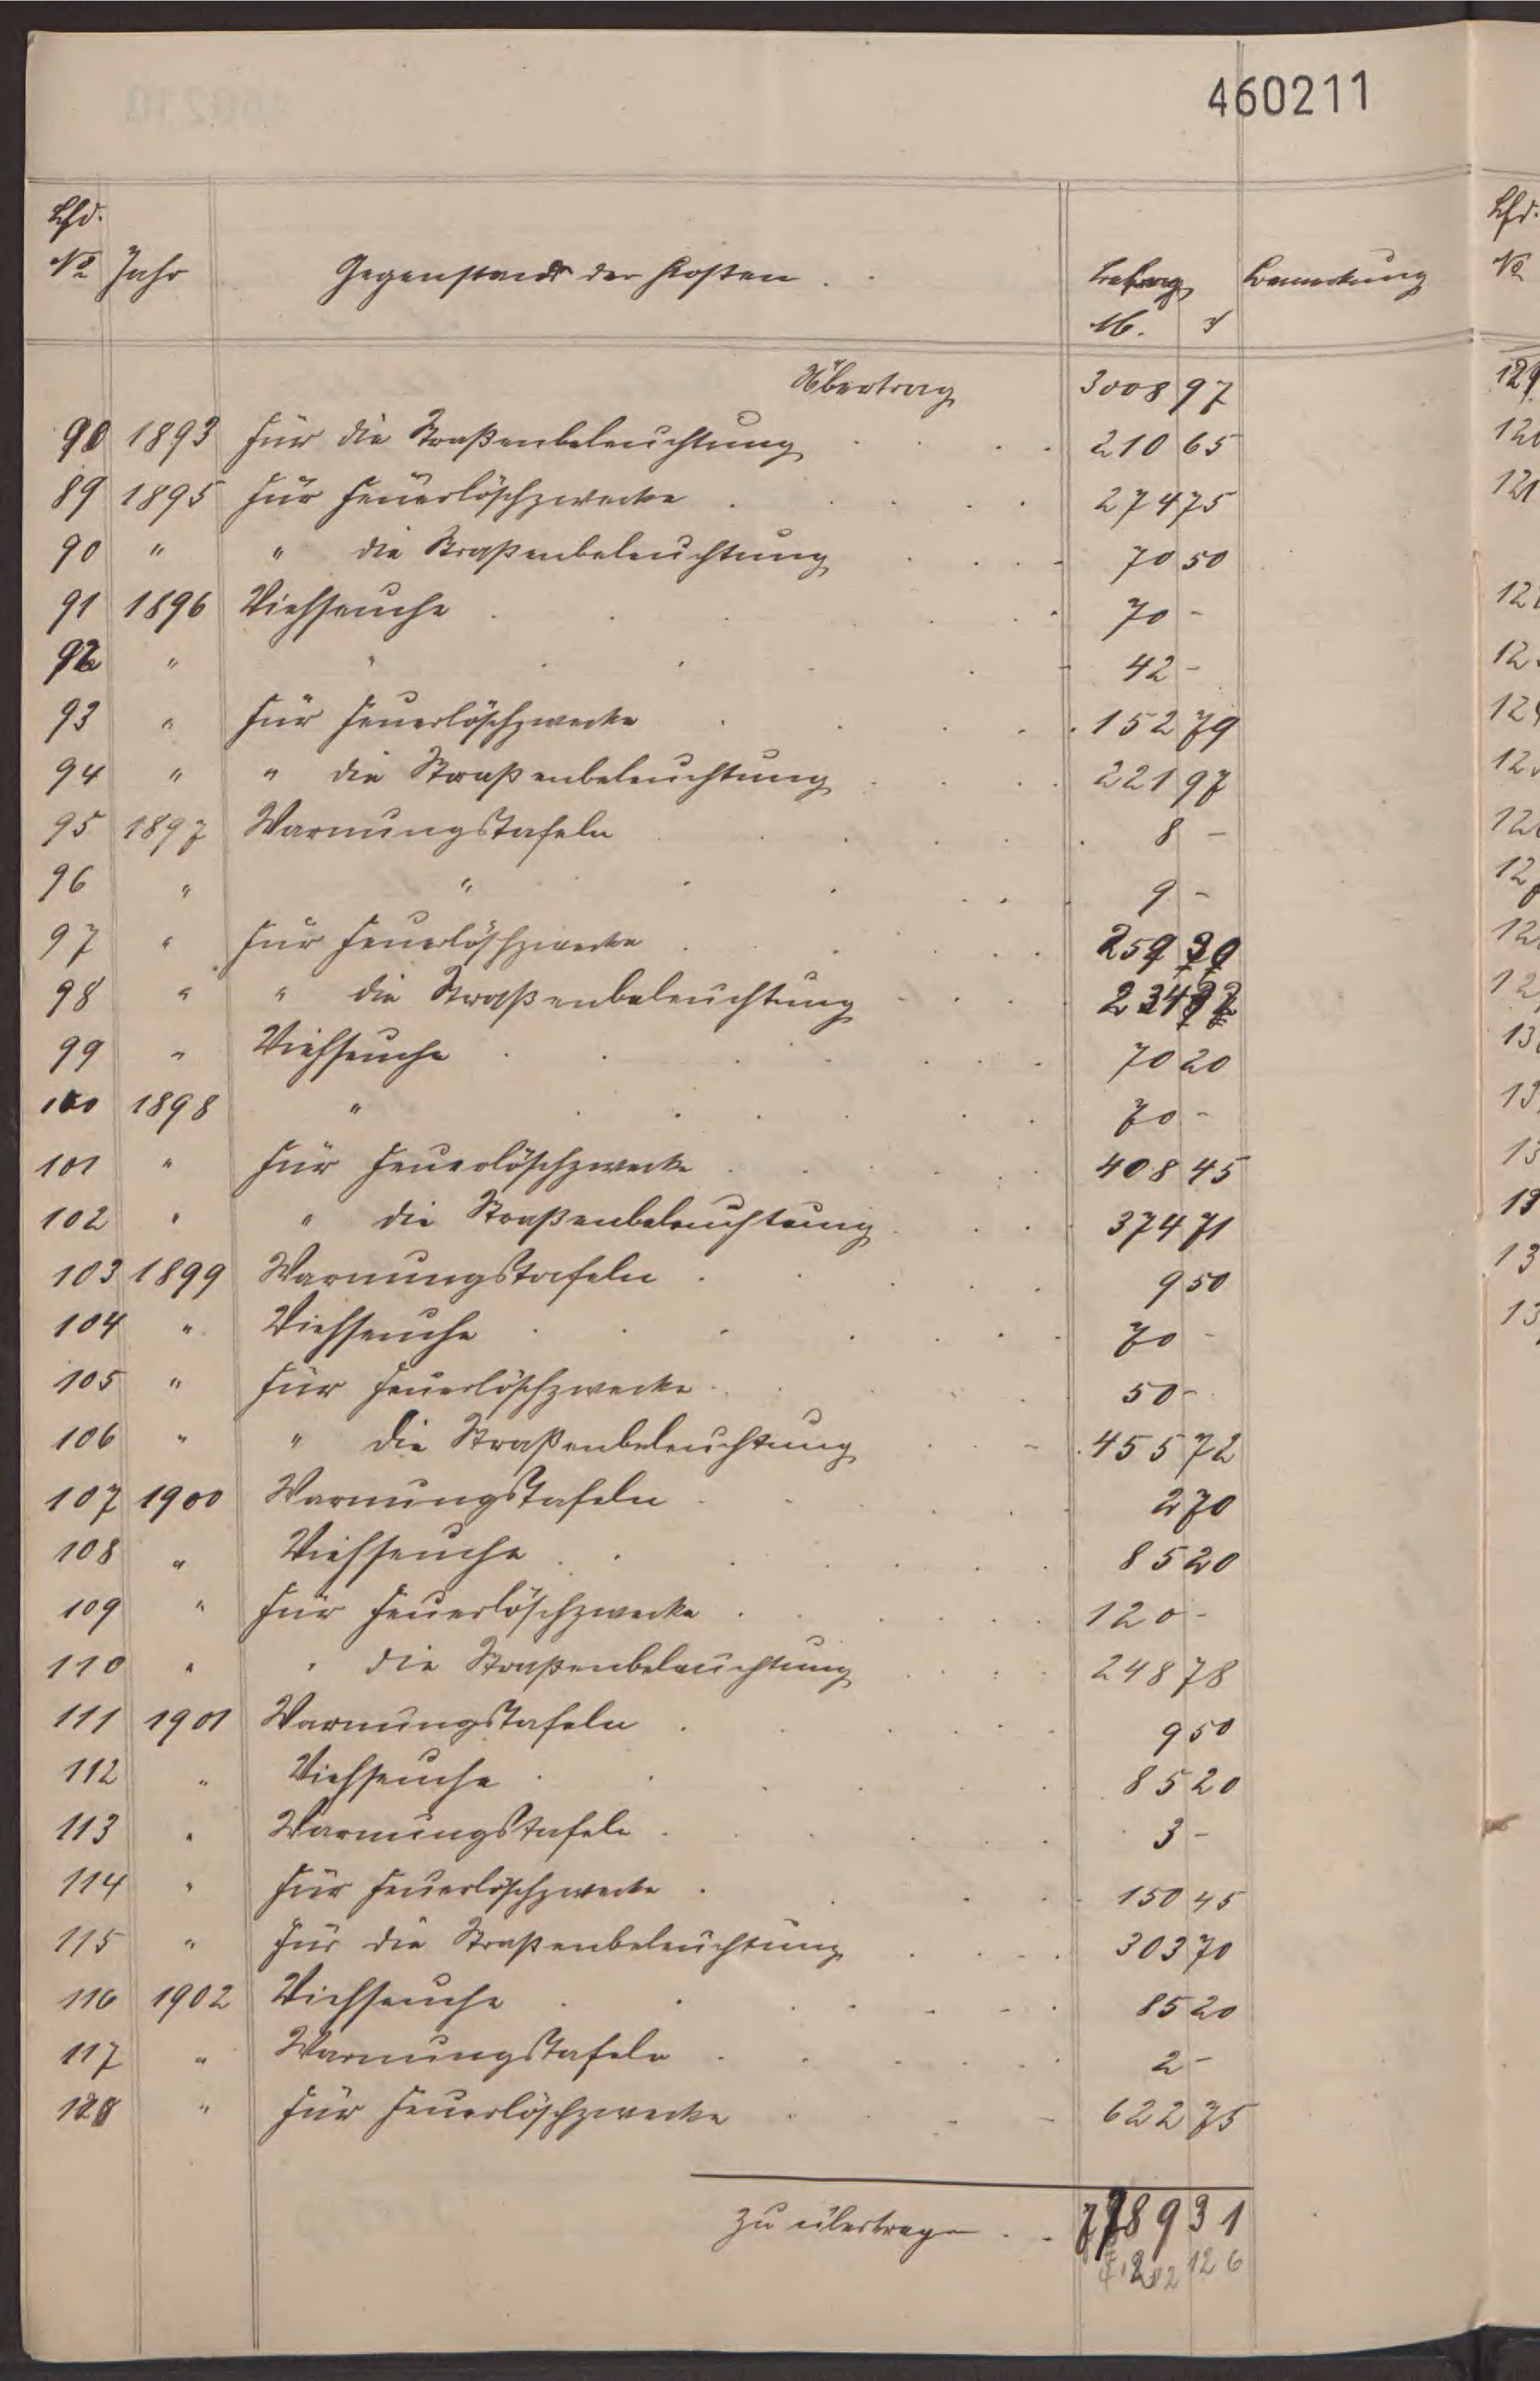 460211
Lfd.
No Jahr Gegenstand der Kosten. Betrag Bemerkung
M. ₰
Übertrag 3008 97
90 1893 Für die Straßenbeleuchtung 210 65
89 1895 Für Feuerlöschzwecke 274 75
90 " " die Straßenbeleuchtung 70 50
91 1896 Viehseuche 70 -
92 " " 42 -
93 " Für Feuerlöschzwecke 152 79
94 " " die Straßenbeleuchtung 221 97
95 1897 Warnungstafeln 8 -
96 " " 9 -
97 " Für Feuerlöschzwecke 259 30
98 " " die Straßenbeleuchtung 234
99 " Viehseuche 70 20
100 1898 " 70 -
101 " Für Feuerlöschzwecke 408 45
102 " " die Straßenbeleuchtung 374 71
103 1899 Warnungstafeln 9 50
104 " Viehseuche 70 -
105 " Für Feuerlöschzwecke 50 -
106 " " die Straßenbeleuchtung 455 72
107 1900 Warnungstafeln 2 70
108 " Viehseuche 85 20
109 " Für Feuerlöschzwecke 120 -
110 " " die Straßenbeleuchtung 248 78
111 1901 Warnungstafeln 9 50
112 " Viehseuche 85 20
113 " Warnungstafeln 3 -
114 " Für Feuerlöschzwecke 150 45
115 " Für die Straßenbeleuchtung 303 70
116 1902 Viehseuche 85 20
117 " Warnungstafeln 2 -
118 " Für Feuerlöschzwecke 622 75
zu übertragen 7789 31